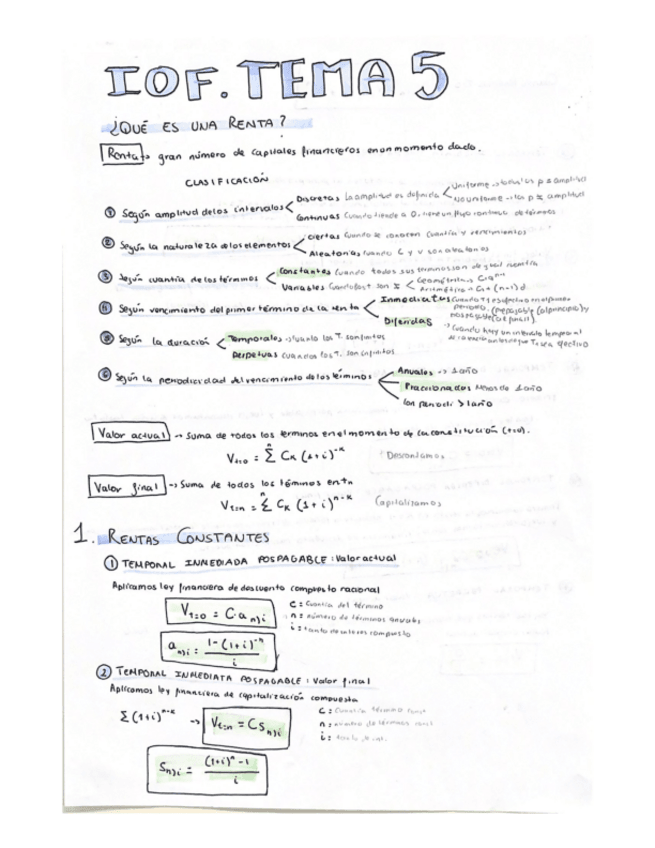 IOF. TEMA 5
¿QUÉ ES UNA RENTA?
Renta → gran número de capitales financieros en un momento dado.
CLASIFICACIÓN
① Según amplitud de los intervalos
Discretas La amplitud es definida
Uniforme → todas
No uniforme
amplitud
Continuas Cuando tiende a 0, tiene un flujo continuo de términos
② Según la naturaleza de los elementos
Ciertas Cuando se conocen cuantía y vencimientos
Aleatorias cuando C y v son aleatorios
③ Según cuantía de los términos
Constantes Cuando todos sus términos son de igual cuantía
Variables Cuando
Geométrica
Aritmética C₁ + (n-1) d.
④ Según vencimiento del primer término de la renta
Inmediatas
(prepagable (al principio) y
pospagable (al final).
Diferidas
→ Cuando hay un intervalo temporal
⑤ Según la duración
Temporales → Cuando los T. son finitos
Perpetuas Cuando los T. son infinitos
⑥ Según la periodicidad del vencimiento de los términos
Anuales → 1 año
Fraccionadas Menos de 1 año
Con periodi > 1 año
Valor actual → Suma de todos los términos en el momento de la constitución (t=0).
Vt=0 = Σ Cκ (1+i)^-κ Descontamos
Valor final → Suma de todos los términos en tn
Vt=n = Σ Cκ (1+i)^n-κ Capitalizamos
1. RENTAS CONSTANTES
① TEMPORAL INMEDIADA POSPAGABLE: Valor actual
Aplicamos ley financiera de descuento compuesto racional
Vt=0 = C·a n⌉i
C: Cuantía del término
n: número de términos anuales
i: tanto de interés compuesto
a n⌉i = 1-(1+i)^-n / i
② TEMPORAL INMEDIATA POSPAGABLE: Valor final
Aplicamos ley financiera de capitalización compuesta
Σ (1+i)^n-κ → Vt=n = C S n⌉i
C: Cuantía término const
n: número de términos const
i: tanto de int.
S n⌉i = (1+i)^n - 1 / i